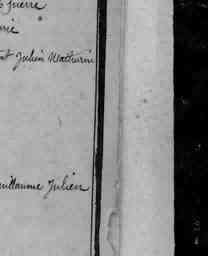 Guerre
et Julien Mathurin
Guillaume Julien